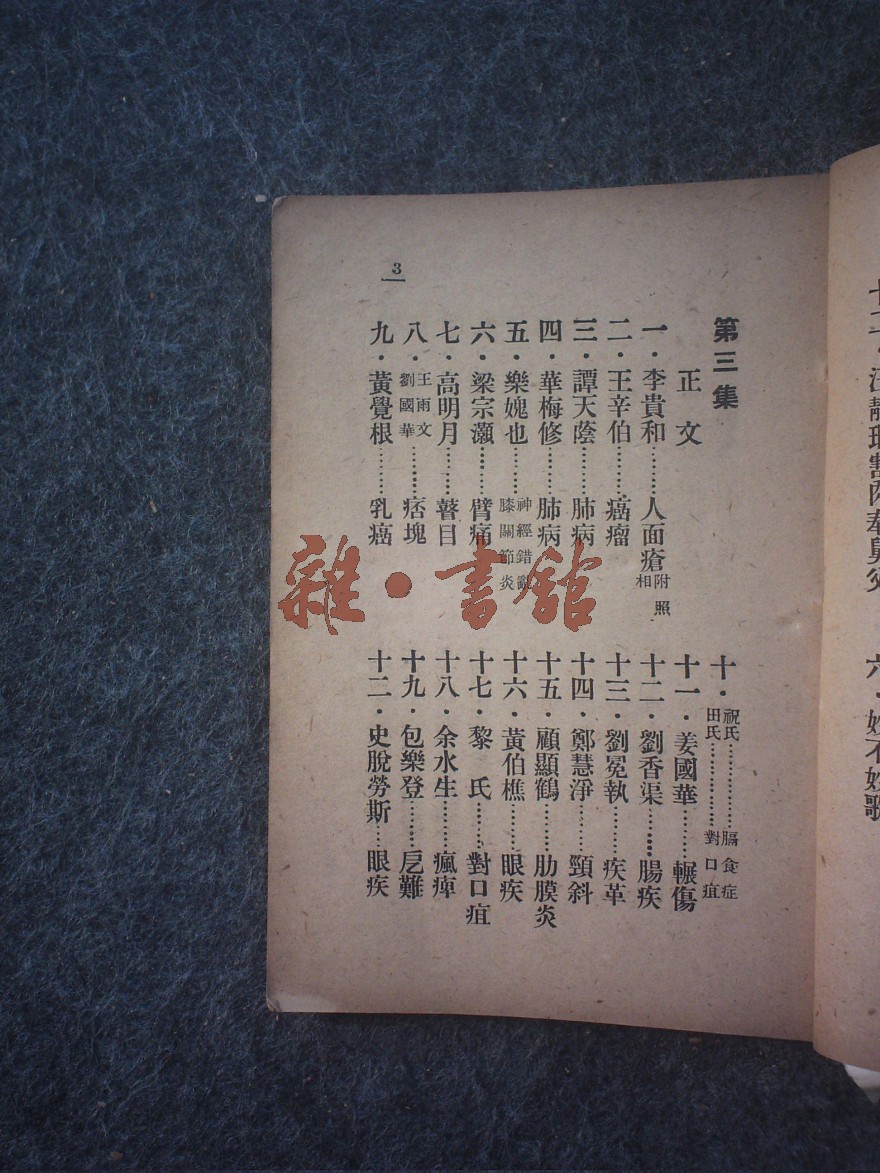 十二・汪靜
割肉奉舅父
六・
不
歌
3
第三集
正文
一・李貴和………人面瘡附照相
二・王辛伯………癌瘤
三・譚天蔭………肺病
四・華梅修………肺病
五・樂媿也………神經錯亂 膝關節炎
六・梁宗灝………臂痛
七・高明月………瞽目
八・王雨文 劉國華………痞塊
九・黃覺根………乳癌
十・祝氏………膈食症
田氏………對口疽
十一・姜國華………輾傷
十二・劉香渠………腸疾
十三・劉冕執………疾革
十四・鄭慧淨………頸斜
十五・顧顯鶴………肋膜炎
十六・黃伯樵………眼疾
十七・黎氏………對口疽
十八・余水生………瘋痺
十九・包樂登………戹難
十二・史脫勞斯………眼疾
雜・書館